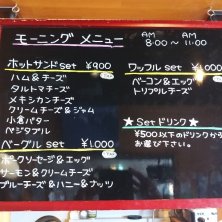 モーニング メニュー
AM 8:00 ～ AM 11:00
ホットサンド set ¥900
ハム&チーズ
タルトマチーズ
メキシカンチーズ
クリームチーズ&ジャム
小倉バター
ベジタブル
ベーグル set ¥1,000
ポークソーセージ&エッグ
サーモン&クリームチーズ
ブルーチーズ&ハニー&ナッツ
ワッフル set ¥1,000
ベーコン&エッグ
トリプルチーズ
★ Set ドリンク ★
¥500以下のドリンクから
お選び下さい。